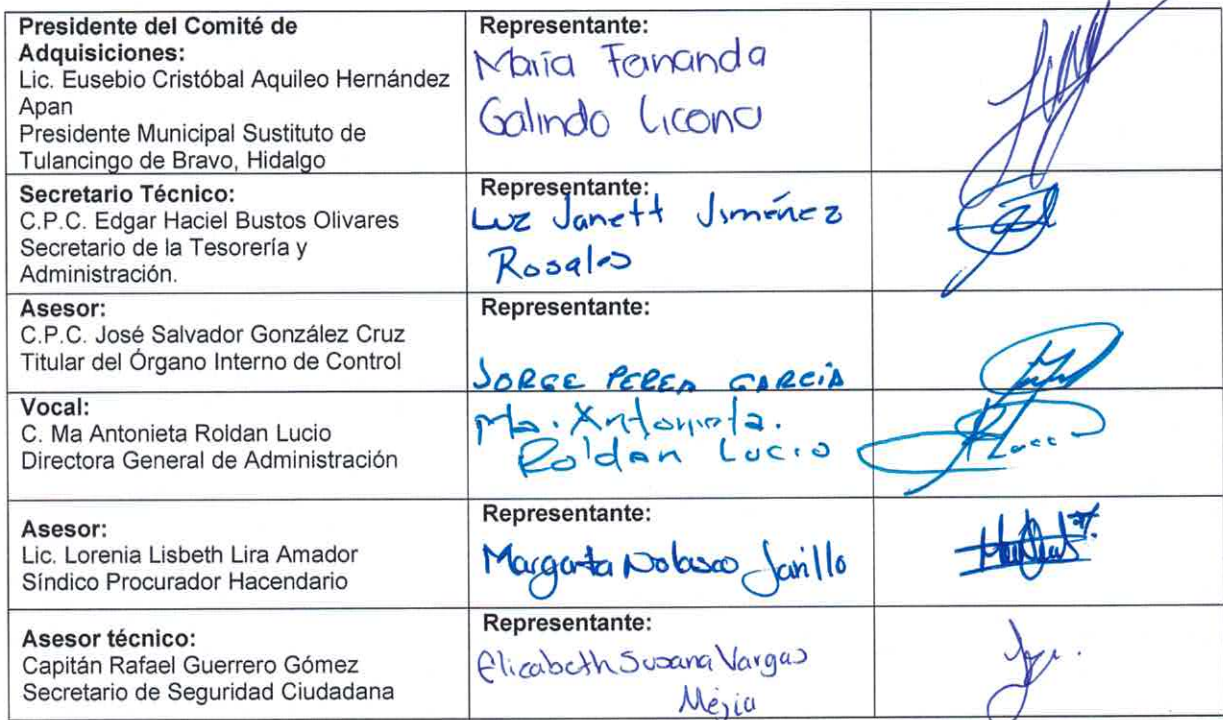 Presidente del Comité de
Adquisiciones:
Lic. Eusebio Cristóbal Aquileo Hernández
Apan
Presidente Municipal Sustituto de
Tulancingo de Bravo, Hidalgo
Representante:
María Fernanda
Galindo Licona
Secretario Técnico:
C.P.C. Edgar Haciel Bustos Olivares
Secretario de la Tesorería y
Administración.
Representante:
Luz Janett Jiménez
Rosales
Asesor:
C.P.C. José Salvador González Cruz
Titular del Órgano Interno de Control
Representante:
JORGE PEREA GARCÍA
Vocal:
C. Ma Antonieta Roldan Lucio
Directora General de Administración
Ma. Antonieta.
Roldan Lucio
Asesor:
Lic. Lorenia Lisbeth Lira Amador
Síndico Procurador Hacendario
Representante:
Margarita Nolasco Jarillo
Asesor técnico:
Capitán Rafael Guerrero Gómez
Secretario de Seguridad Ciudadana
Representante:
Elizabeth Susana Vargas
Mejia